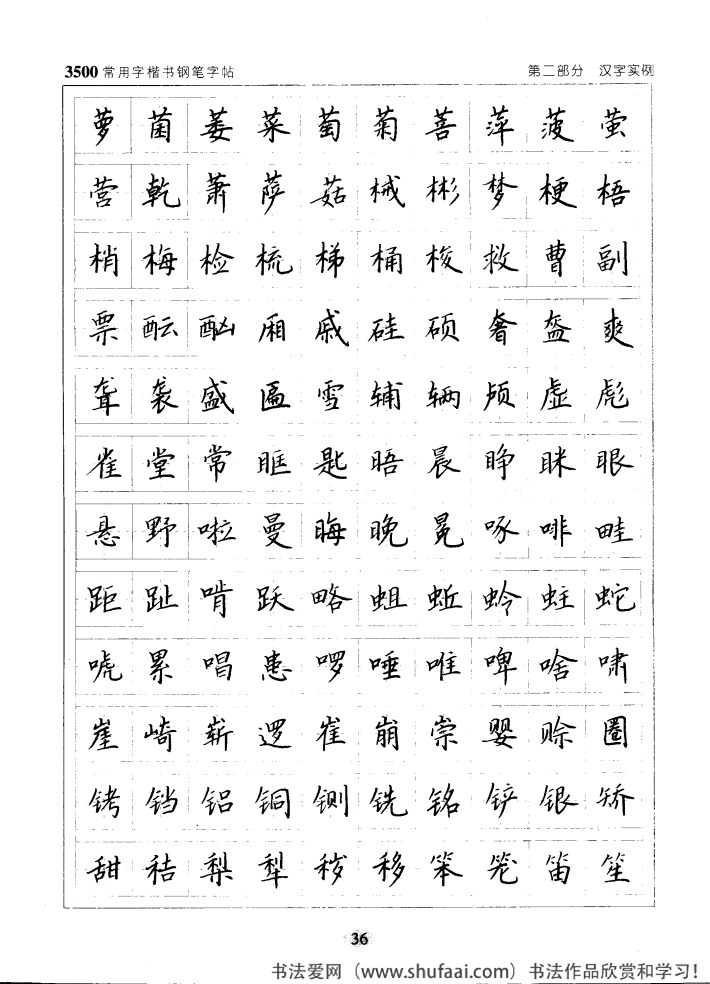 3500常用字楷书钢笔字帖 第二部分 汉字实例
萝 菌 萎 菜 萄 菊 菩 萍 菠 萤
营 乾 萧 萨 菇 械 彬 梦 梗 梧
梢 梅 检 梳 梯 桶 梭 救 曹 副
票 酝 酗 厢 戚 硅 硕 奢 盔 爽
聋 袭 盛 匾 雪 辅 辆 颅 虚 彪
雀 堂 常 眶 匙 晤 晨 睁 眯 眼
悬 野 啦 曼 晦 晚 冕 啄 啡 畦
距 趾 啃 跃 略 蛆 蚯 蛉 蛀 蛇
唬 累 唱 患 啰 唾 唯 啤 啥 啸
崖 崎 崭 逻 崔 崩 崇 婴 赊 圈
铐 铛 铝 铜 铡 铣 铭 铲 银 矫
甜 秸 梨 犁 秽 移 笨 笼 笛 笙
36
书法爱网（www.shufaai.com）书法作品欣赏和学习！